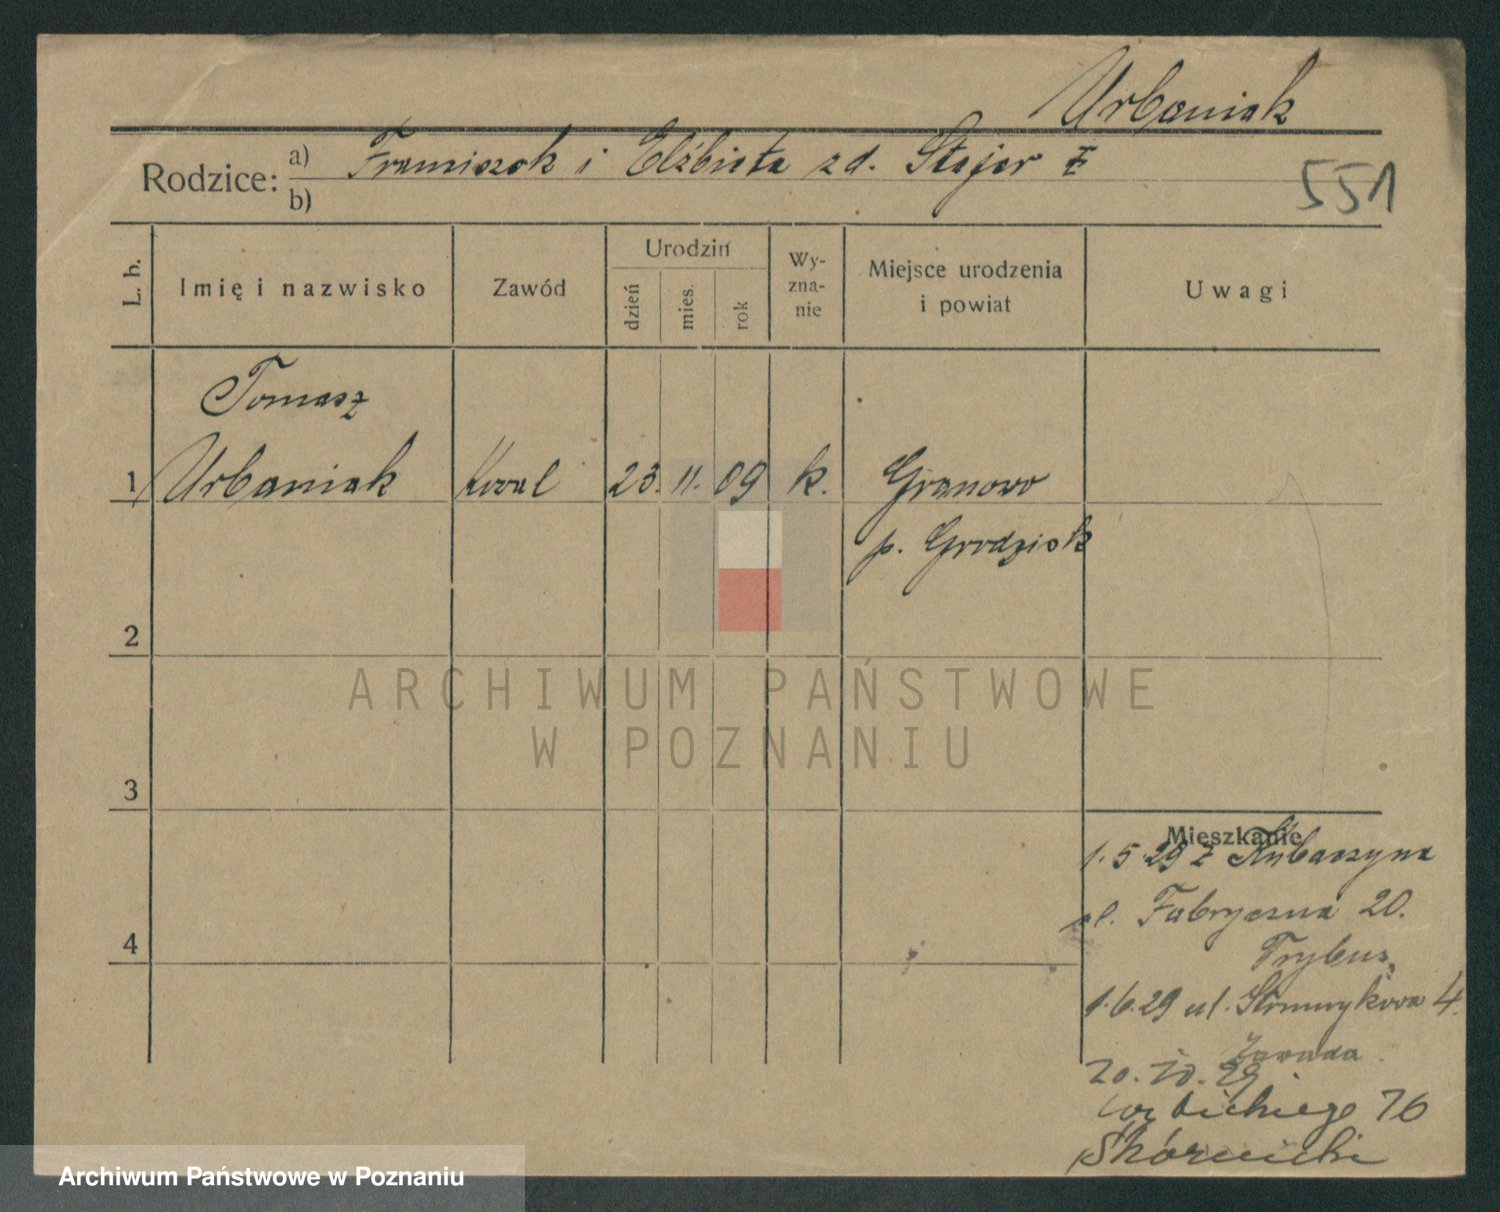 Urbaniak
Rodzice: a) Franciszek i Elżbieta zd. Stajer
b)
551
L. b.
Imię i nazwisko
Zawód
Urodzin
dzień
mies.
rok
Wy-
zna-
nie
Miejsce urodzenia
i powiat
Uwagi
Tomasz
1 Urbaniak Kowal 23. 11. 09 k. Granowo
p. Grodzisk
2
ARCHIWUM PAŃSTWOWE
W POZNANIU
3
Mieszkanie
1.5.29 z
4
ul. Fabryczna 20.
Trybus
1.6.29 ul. 4.
Zawada
20. 10. 29
76
Skórnicki
Archiwum Państwowe w Poznaniu